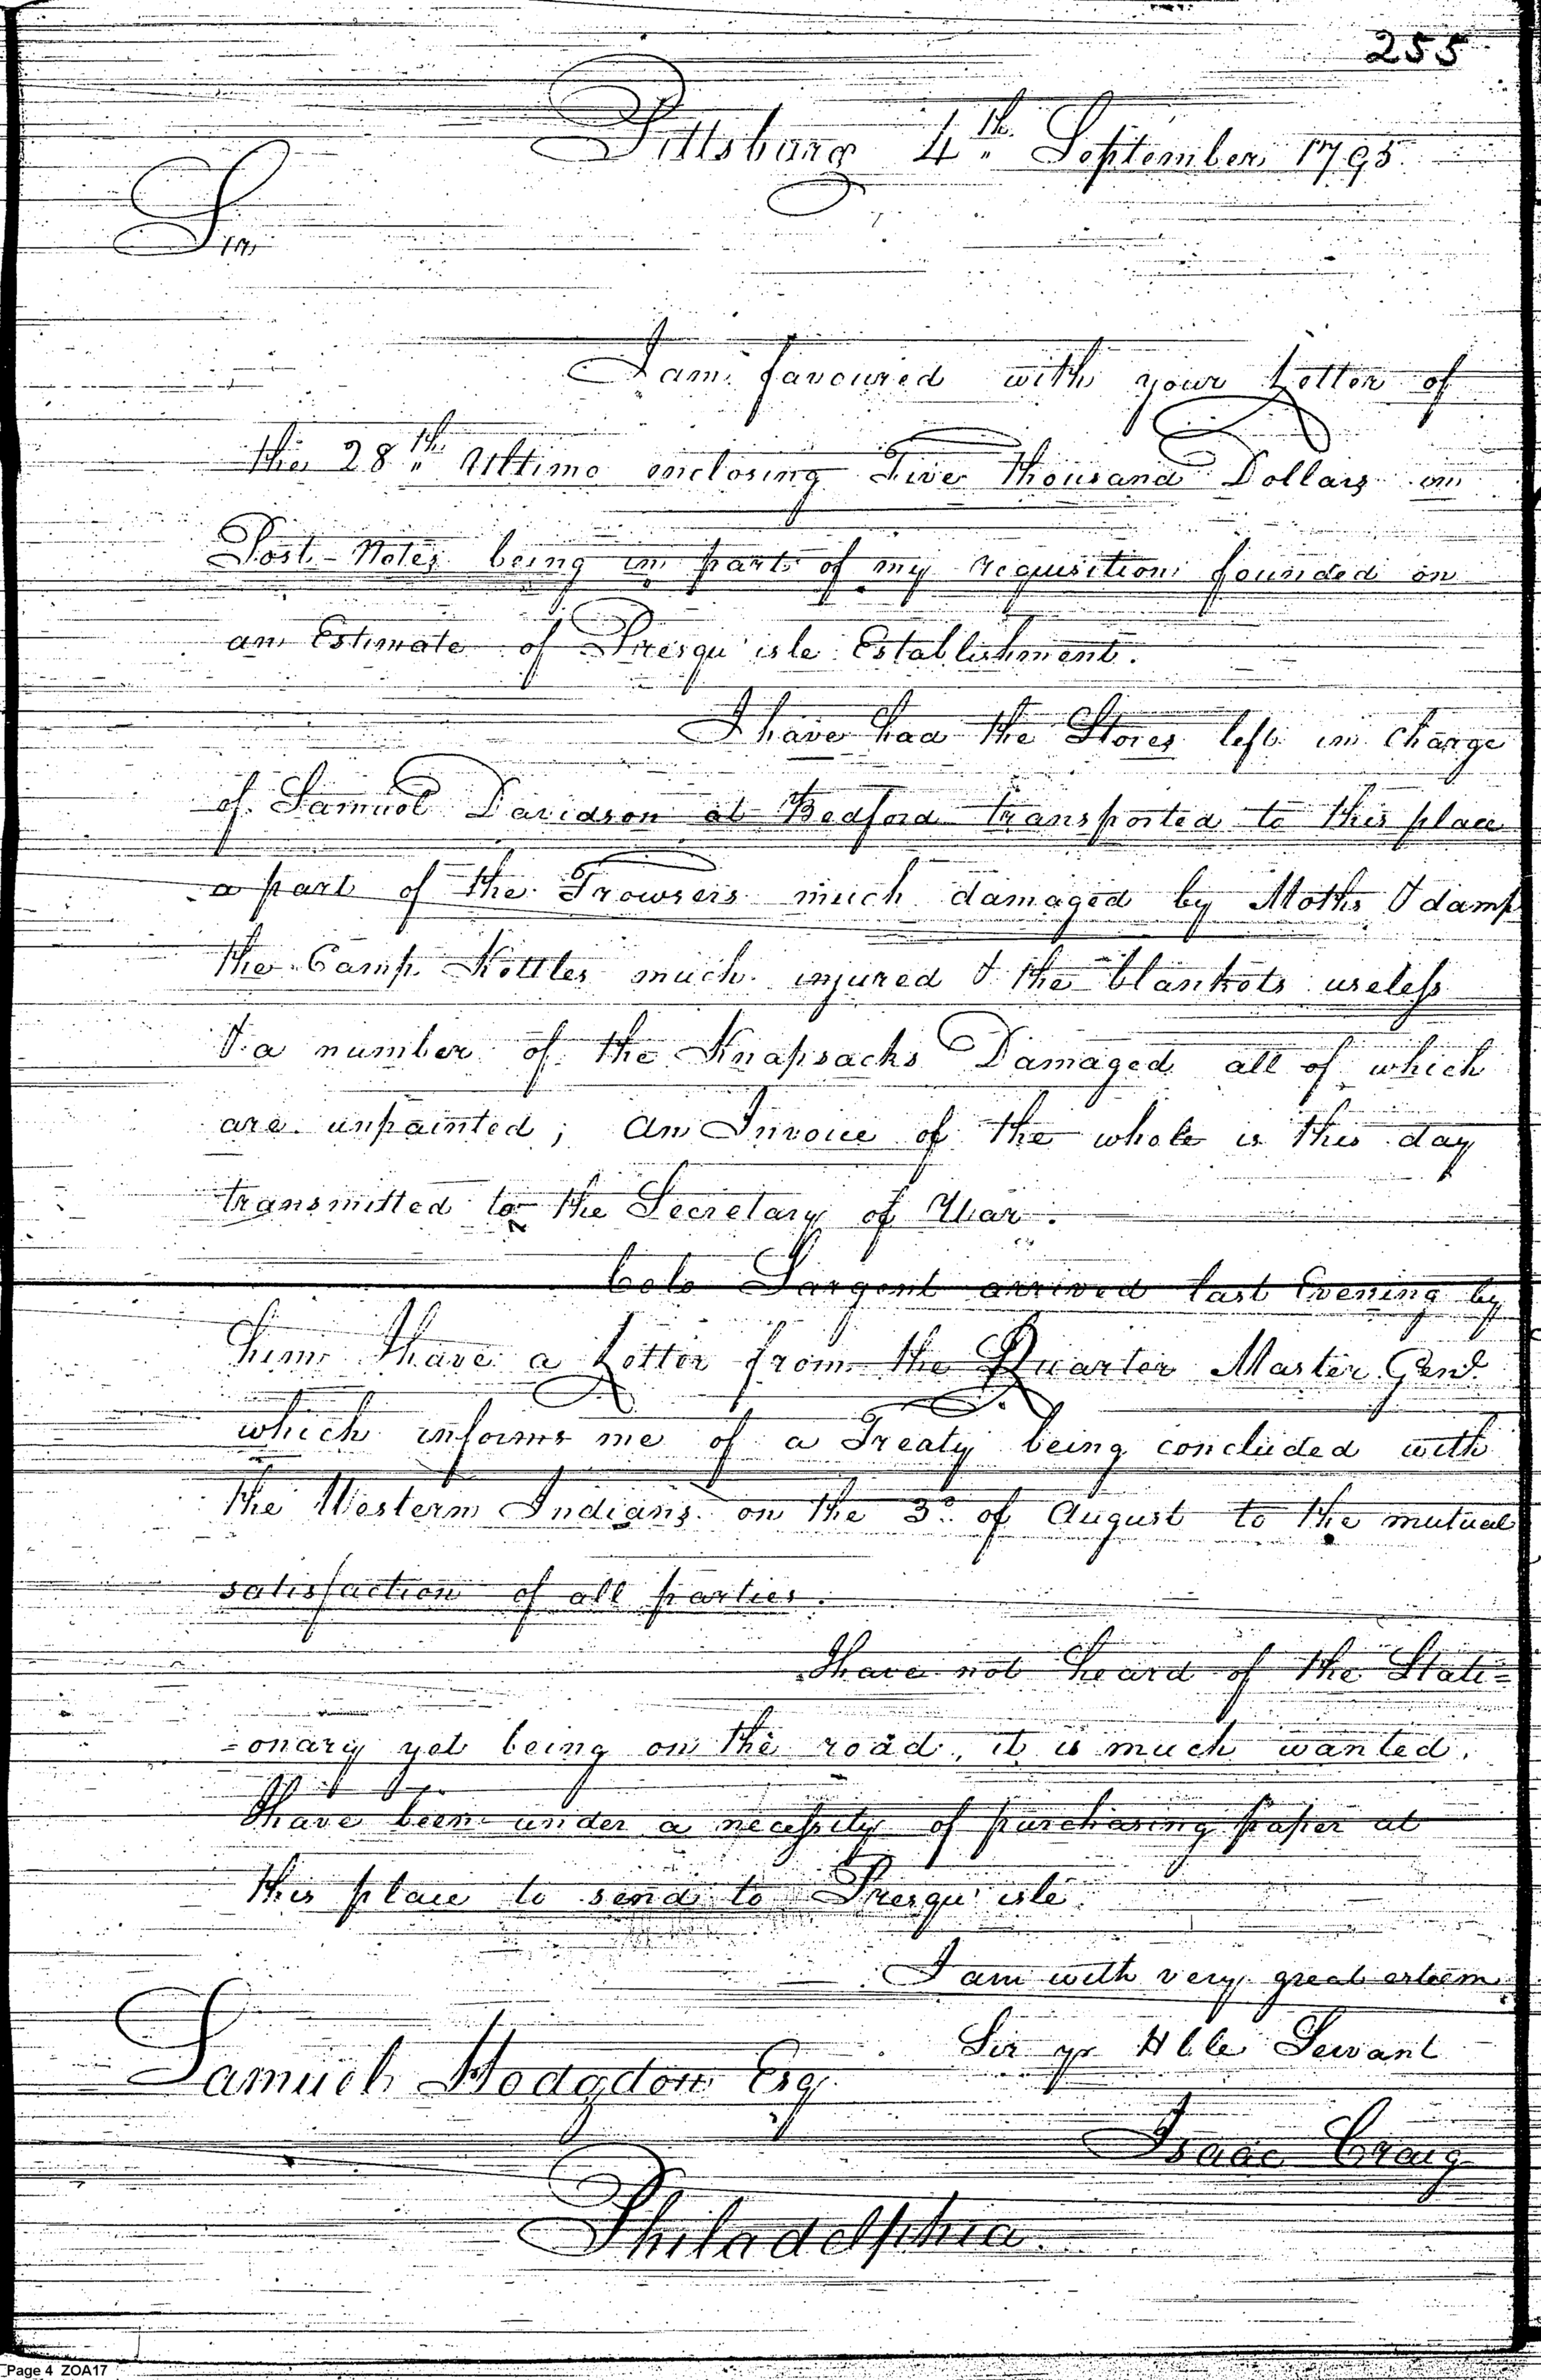 255
Pittsburg 4th September 1795
Sir
I am favoured with your Letter of
the 28th Ultimo enclosing Five thousand Dollars in
Post-Notes being in part of my requisition founded on
an Estimate of Presqu' isle Establishment.
I have had the Stores left in Charge
of Samuel Davidson at Bedford transported to this place
a part of the Trowsers much damaged by Moths & damp
the Camp Kettles much injured & the blankets useless
& a number of the Knapsacks Damaged all of which
are unpainted; An Invoice of the whole is this day
transmitted to the Secretary of War.
Colo Sargent arrived last Evening by
him I have a Letter from the Quarter Master Genl
which informs me of a Treaty being concluded with
the Western Indians on the 3d of August to the mutual
satisfaction of all parties.
I have not heard of the Stati=
=onary yet being on the road, it is much wanted.
I have been under a necessity of purchasing paper at
this place to send to Presqu' isle.
I am with very great esteem
Sir yr Hble Servant
Samuel Hodgdon Esq.
Isaac Craig
Philadelphia
Page 4 ZOA17